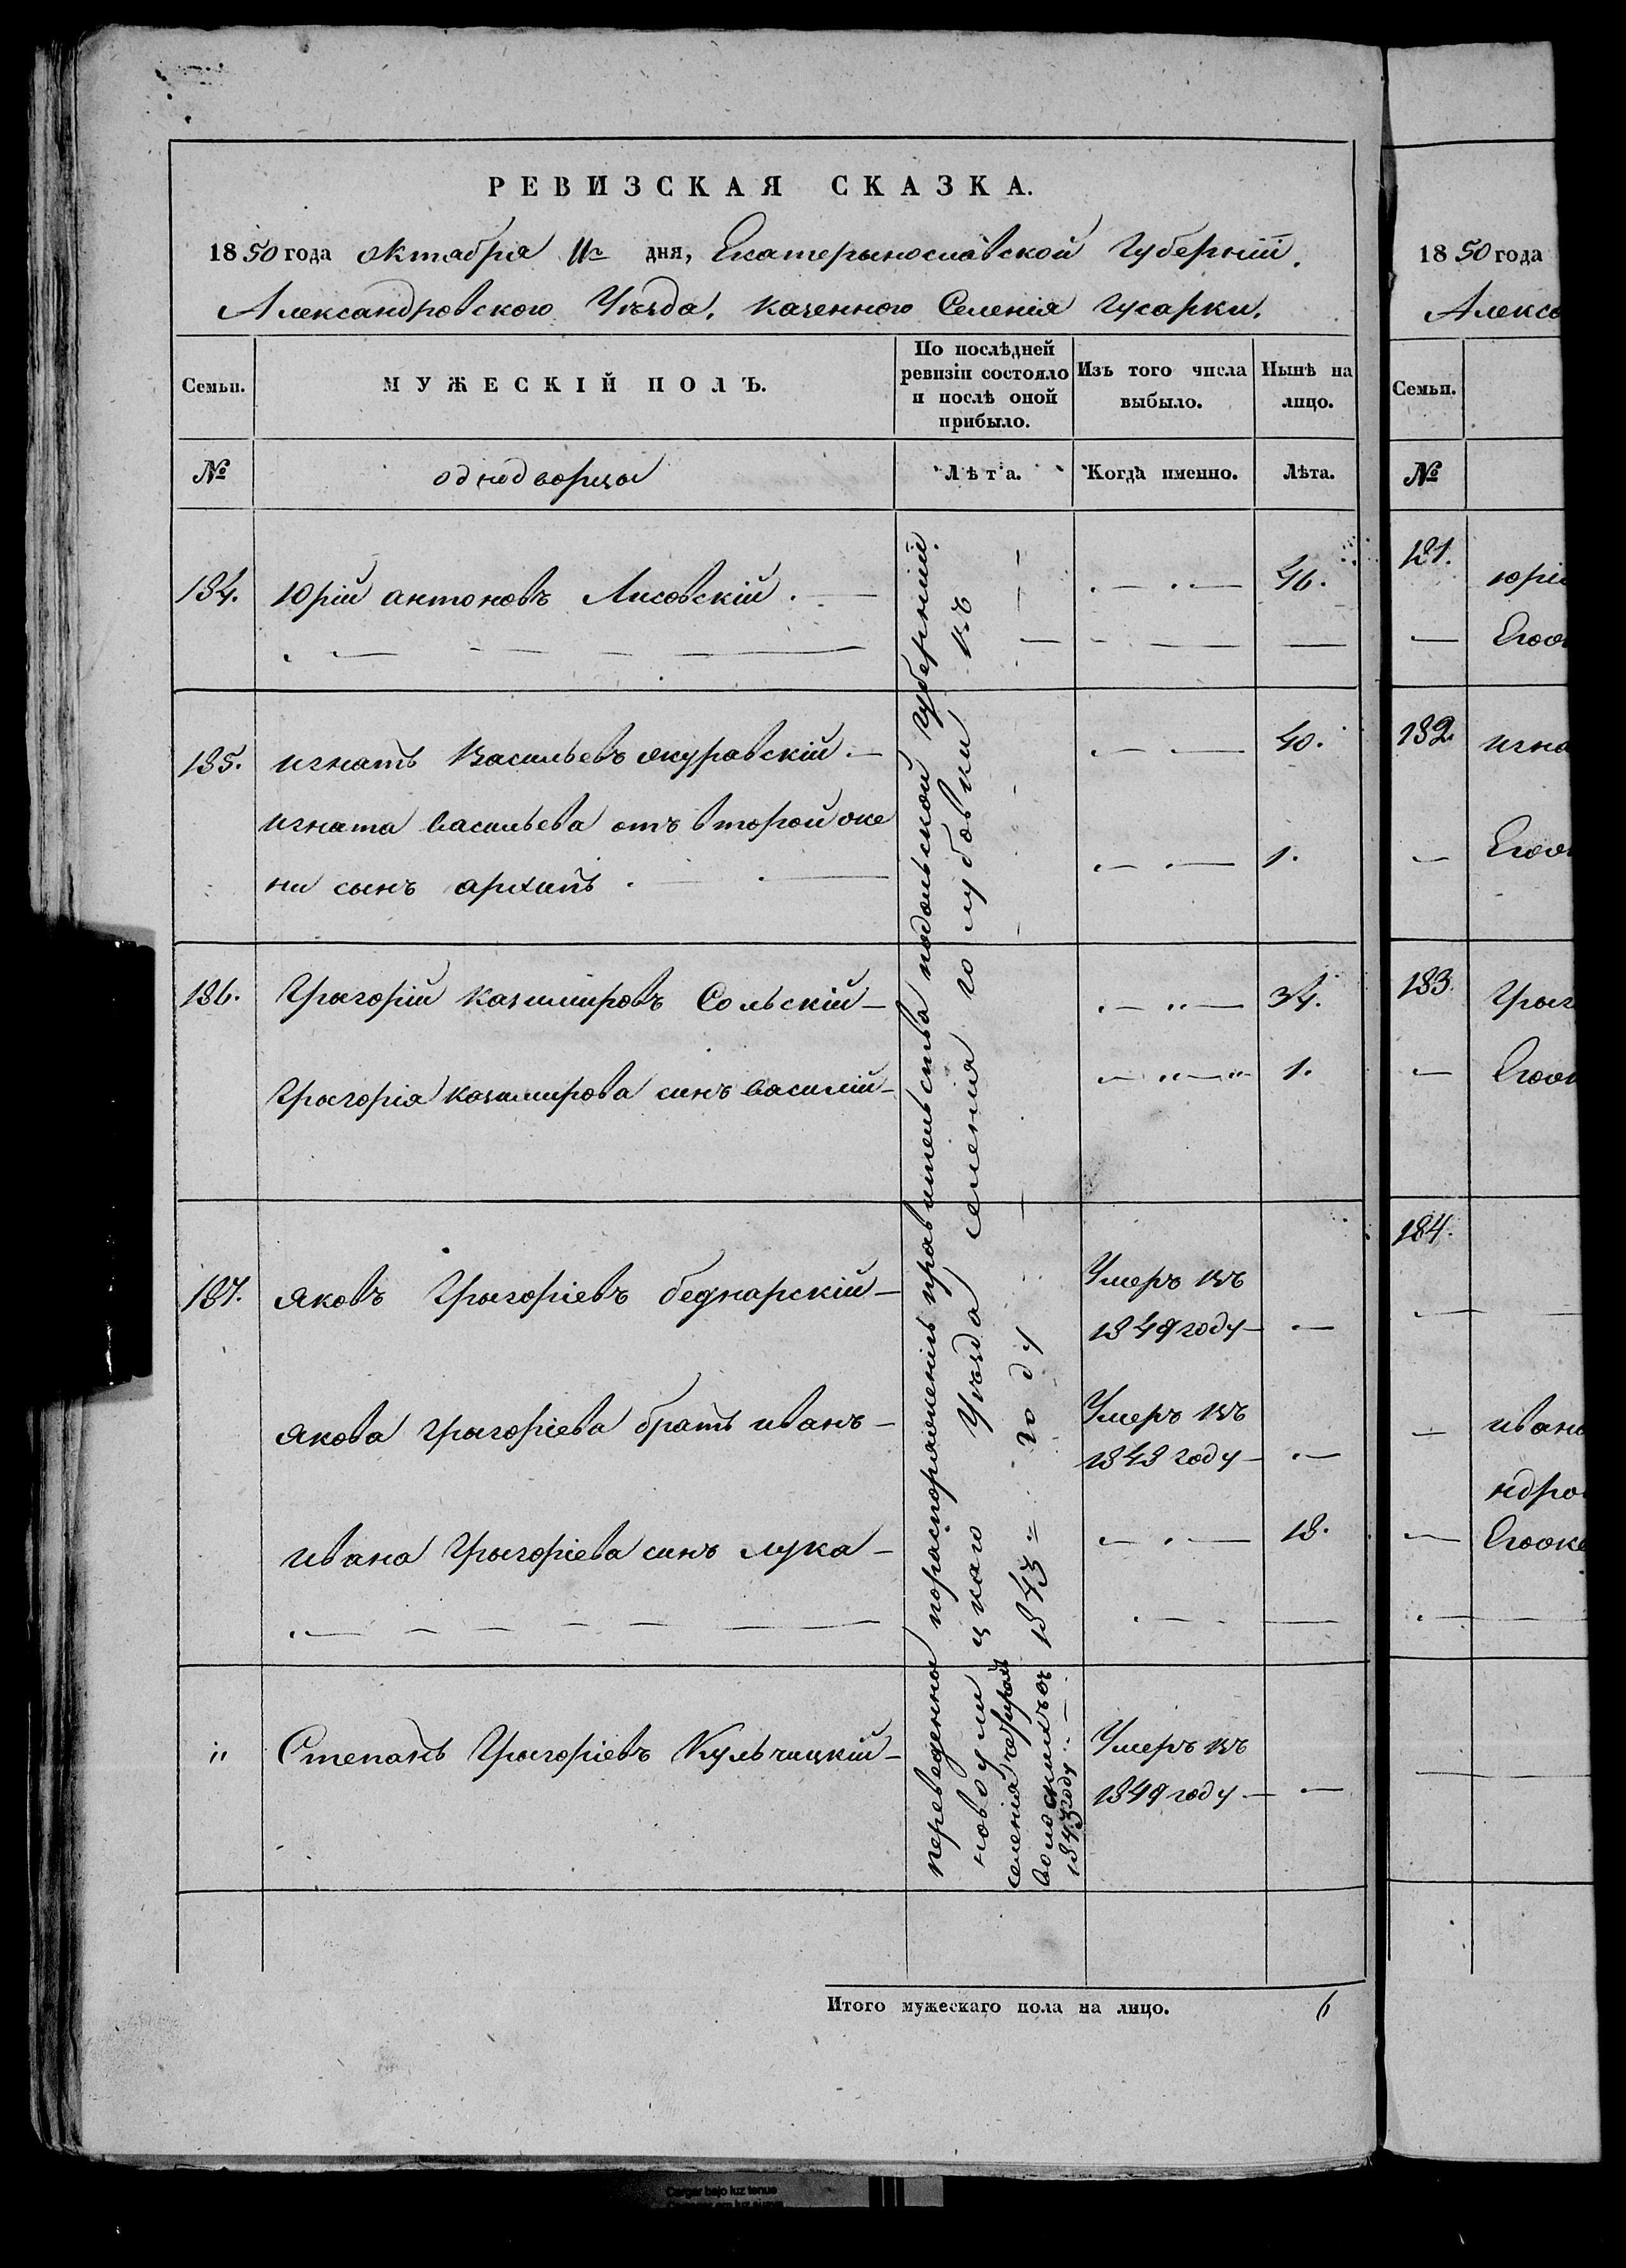 РЕВИЗСКАЯ СКАЗКА.
1850 года октабря 11го дня, Екатерынославской Губерніи.
Александровского Уѣзда, казенного Селенія Гусарки.
Семьи.
МУЖЕСКІЙ ПОЛЪ.
По послѣдней ревизіи состояло и послѣ оной прибыло.
Изъ того числа выбыло.
Нынѣ на лицо.
№
однодворцы
Лѣта.
Когда именно.
Лѣта.
184. Юрій антоновъ Лисовскій . — 46.
185. игнатъ Васильевъ журавскій . — 40.
игната васильева отъ второй же
ни сынъ архипъ . — 1.
186. Грыгорій казимировъ Сольскій — 34.
Грыгорія казимирова синъ василій — 1.
187. яковъ Грыгоріевъ беднарскій — Умеръ въ
1849 году —
якова грыгоріева братъ иванъ — Умеръ въ
1848 году —
ивана Грыгоріева синъ лука — 18.
" Степанъ Грыгоріевъ Кульчицкій — Умеръ въ
1849 году —
переведенны пораспоряженію правительства подольской Губерніи.
новоушицкаго Уѣзда селенія голубовки въ
1843 = году
селенія
1843 году
Итого мужескаго пола на лицо. 6
1850 года
Алекса
Семьи.
№
181. юрій
Егож
182. игна
Егож
183. Грыг
Егож
184.
ивана
ндро
Егоже
Cargar bajo luz tenue